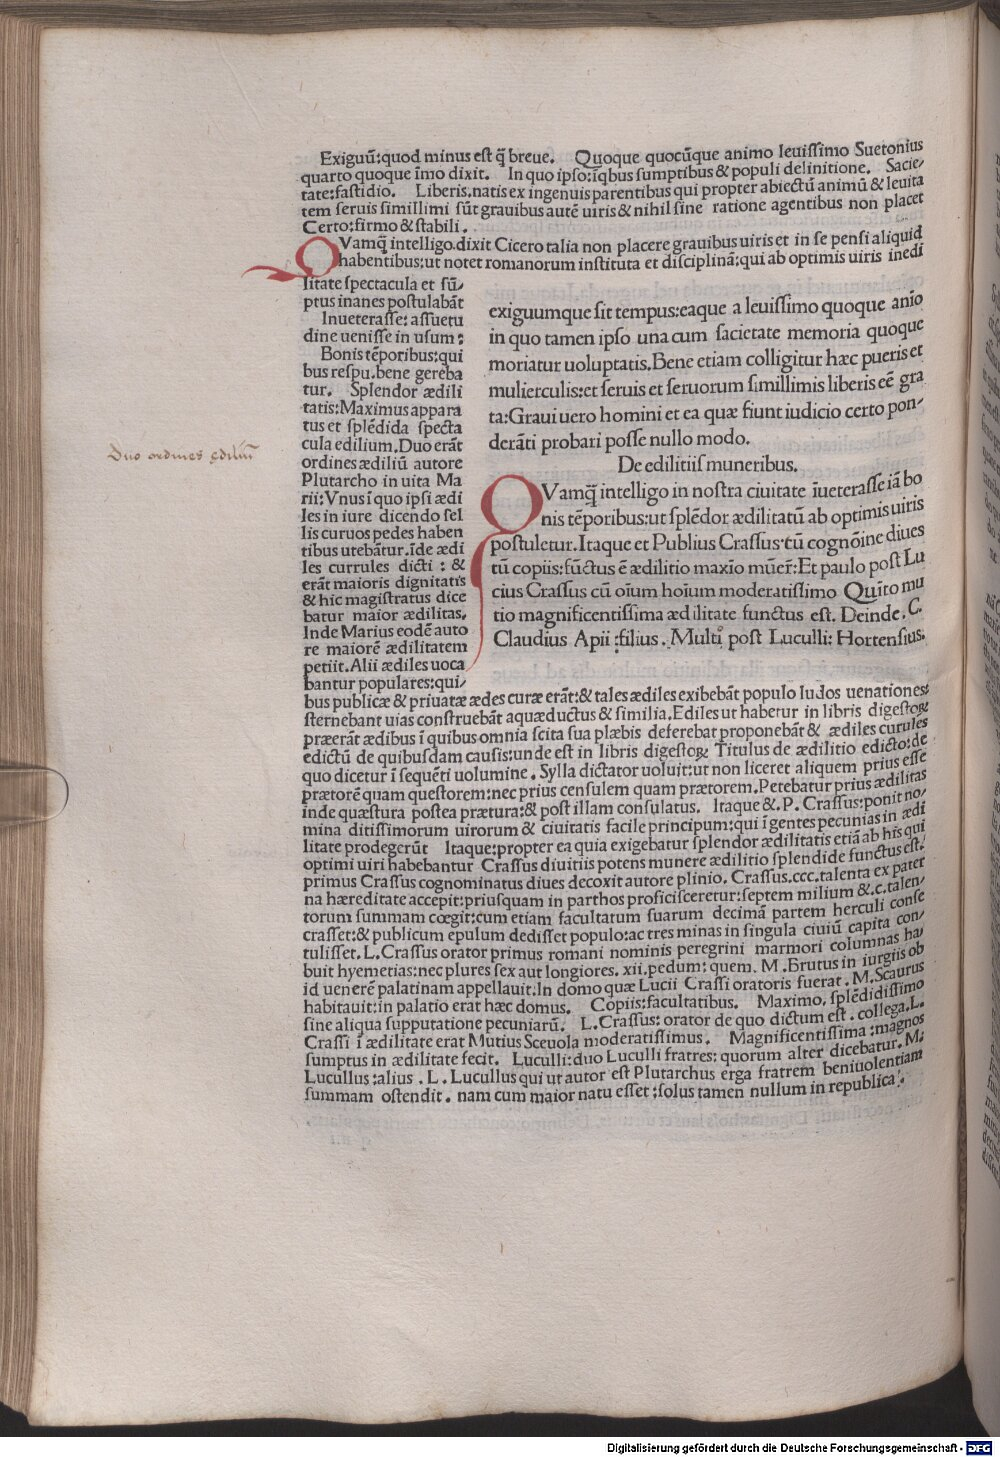 Exiguū:quod minus est q̄ breue. Quoque quocūque animo leuissimo Suetonius
quarto quoque īmo dixit. In quo ipso:īqbus sumptibus & populi delinitione. Sacie/
tate:fastidio. Liberis.natis ex ingenuis parentibus qui propter abiectū animū & leuita
tem seruis simillimi sūt grauibus autē uiris & nihil sine ratione agentibus non placet
Certo:firmo & stabili.
QVamq̄ intelligo.dixit Cicero talia non placere grauibus uiris et in se pensi aliquid
habentibus:ut notet romanorum instituta et disciplinā:qui ab optimis uiris inedi
litate spectacula et sū/
ptus inanes postulabāt
Inueterasse: assuetu
dine uenisse in usum:
Bonis tēporibus:qui
bus respu.bene gereba
tur. Splendor ædili
tatis:Maximus appara
tus et splēdida specta
cula edilium.Duo erāt
ordines ædiliū autore
Plutarcho in uita Ma
rii:Vnus ī quo ipsi ædi
les in iure dicendo sel
lis curuos pedes haben
tibus utebātur.īde ædi
les currules dicti : &
erāt maioris dignitatis
& hic magistratus dice
batur maior ædilitas.
Inde Marius eodē auto
re maiorē ædilitatem
petiit.Alii ædiles uoca
bantur populares:qui/
exiguumque sit tempus:eaque a leuissimo quoque anīo
in quo tamen ipso una cum sacietate memoria quoque
moriatur uoluptatis.Bene etiam colligitur hæc pueris et
mulierculis:et seruis et seruorum simillimis liberis eē gra
ta:Graui uero homini et ea quæ fiunt iudicio certo pon-
derāti probari posse nullo modo.
De edilitiis muneribus.
QVamq̄ intelligo in nostra ciuitate īueterasse iā bo
nis tēporibus:ut splēdor ædilitatū ab optimis uiris
postuletur.Itaque et Publius Crassus·tū cognōine diues
tū copiis:fūctus ē ædilitio maxīo mūer̄:Et paulo post Lu
cius Crassus cū oīum hoīum moderatissimo Quīto mu
tio magnificentissima ædilitate functus est. Deinde.C.
Claudius Apii :filius. Multi post Luculli: Hortensius.
Duo ordines ędiliū
bus publicæ & priuatæ ædes curæ erāt:& tales ædiles exibebāt populo ludos uenationes:
sternebant uias construebāt aquæductus & similia.Ediles ut habetur in libris digestoꝝ
præerāt ædibus ī quibus omnia scita sua plæbis deferebat proponebāt & ædiles curules
edictū de quibusdam causis:unde est in libris digestoꝝ Titulus de ædilitio edicto:de
quo dicetur ī sequēti uolumine. Sylla dictator uoluit:ut non liceret aliquem prius esse
prætorē quam questorem:nec prius censulem quam prætorem.Petebatur prius ædilitas
inde quæstura postea prætura:& post illam consulatus. Itaque &.P. Crassus:ponit no/
mina ditissimorum uirorum & ciuitatis facile principum:qui īgentes pecunias in ædi
litate prodegerūt Itaque:propter ea quia exigebatur splendor ædilitatis etiā ab his qui
optimi uiri habebantur Crassus diuitiis potens munere ædilitio splendide functus est.
primus Crassus cognominatus diues decoxit autore plinio. Crassus.ccc.talenta ex pater
na hæreditate accepit:priusquam in parthos proficisceretur:septem milium &.c.talen/
torum summam cœgit:cum etiam facultatum suarum decimā partem herculi conse
crasset:& publicum epulum dedisset populo:ac tres minas in singula ciuiū capita con/
tulisset.L.Crassus orator primus romani nominis peregrini marmori columnas ha/
buit hyemetias:nec plures sex aut longiores.xii.pedum: quem. M.Brutus in iurgiis ob
id uenerē palatinam appellauit.In domo quæ Lucii Crassi oratoris fuerat.M.Scaurus
habitauit:in palatio erat hæc domus. Copiis:facultatibus. Maximo.splēdidissimo
sine aliqua supputatione pecuniarū. L.Crassus: orator de quo dictum est.collega.L.
Crassi ī ædilitate erat Mutius Sceuola moderatissimus. Magnificentissima:magnos
sumptus in ædilitate fecit. Luculli:duo Luculli fratres: quorum alter dicebatur.M:
Lucullus:alius.L.Lucullus qui ut autor est Plutarchus erga fratrem beniuolentiam
summam ostendit. nam cum maior natu esset:solus tamen nullum in republica:
Digitalisierung gefördert durch die Deutsche Forschungsgemeinschaft - DFG